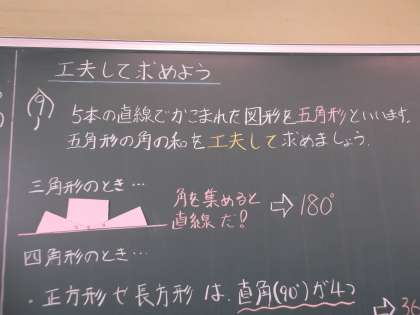 工夫して求めよう
5本の直線でかこまれた図形を五角形といいます。
五角形の角の和を工夫して求めましょう。
三角形のとき…
角を集めると
直線だ!
⇨ 180°
四角形のとき…
・正方形や長方形は、直角(90°)が4つ
⇨ 36